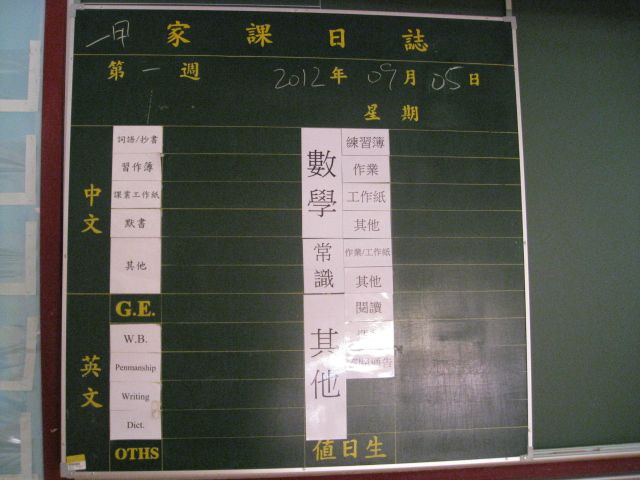 一甲 家課日誌
第一週 2012年09月05日
星期
中文
詞語/抄書
習作簿
課業工作紙
默書
其他
G.E.
英文
W.B.
Penmanship
Writing
Dict.
OTHS
數學
練習簿
作業
工作紙
其他
常識
作業/工作紙
其他
其他
閱讀
通告
值日生